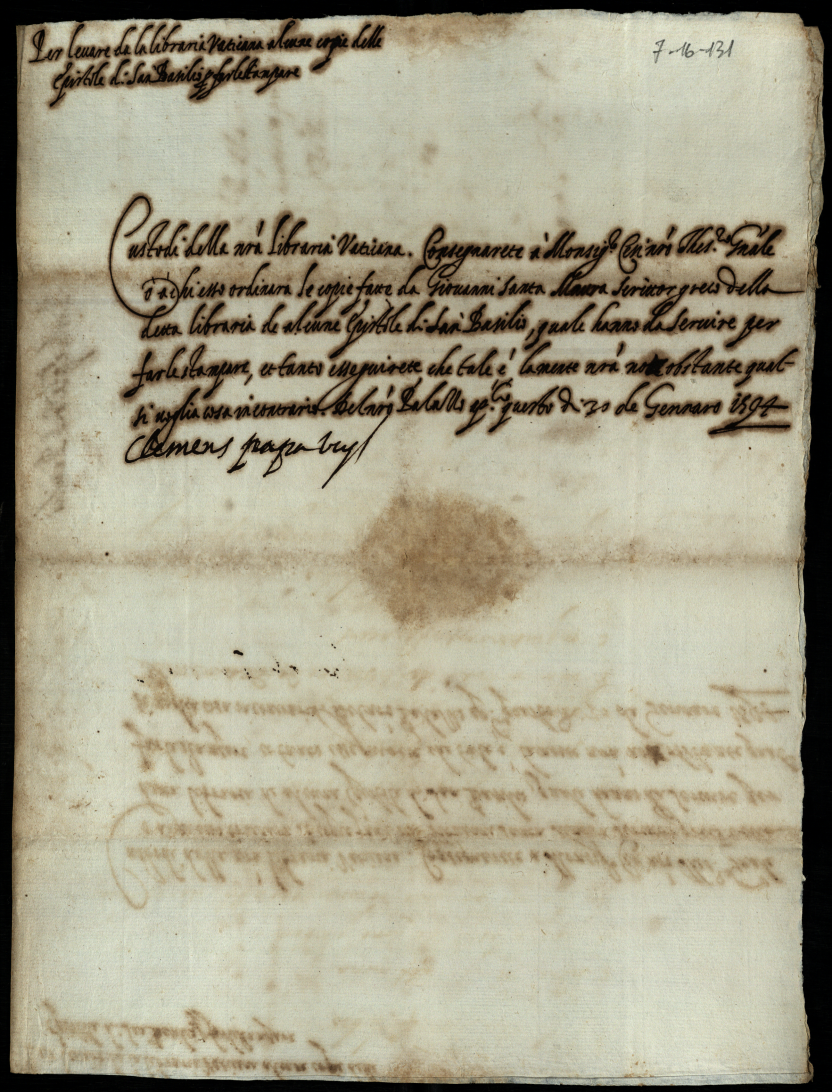 Per levare da la libraria Vaticana alcune copie delle
Epistole di San Basilio p farle stampare
7-16-131
Custodi della nrã libraria Vaticana. Consegnarete à Monsigr. nrõ Thes.re Gñale
ò à chi esso ordinara le copie fatte da Giovanni Santa Maura scrittor greco della
detta libraria de alcune Epistole di San Basilio, quale hanno da servire per
farle stampare, et tanto esseguirete che tale é la mente nrã non obstante qual-
si voglia cosa in contrario. Del nrõ Palazzo ap.lico questo di 20 de Gennaro 1594
Clemens papa viij